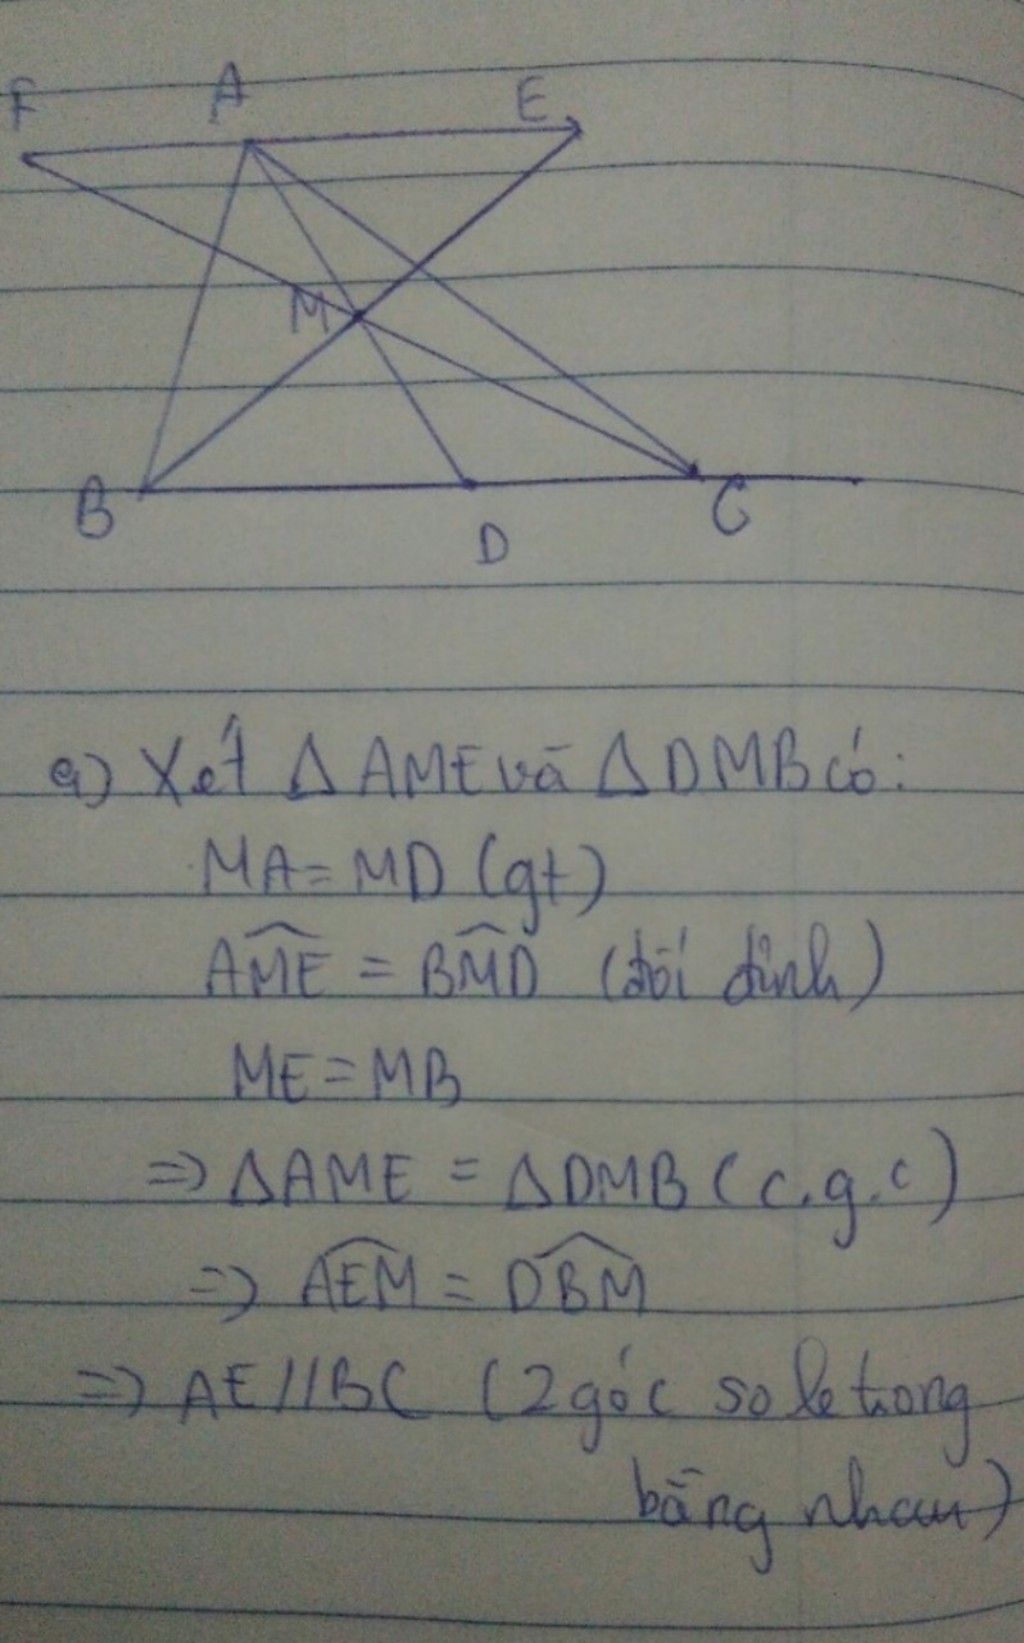 F A E
M
B D C
a) Xét Δ AME và Δ DMB có:
MA = MD (gt)
$\widehat{AME}$ = $\widehat{BMD}$ (đối đỉnh)
ME = MB
=> ΔAME = ΔDMB (c.g.c)
=> $\widehat{AEM}$ = $\widehat{DBM}$
=> AE // BC (2 góc so le trong
bằng nhau)